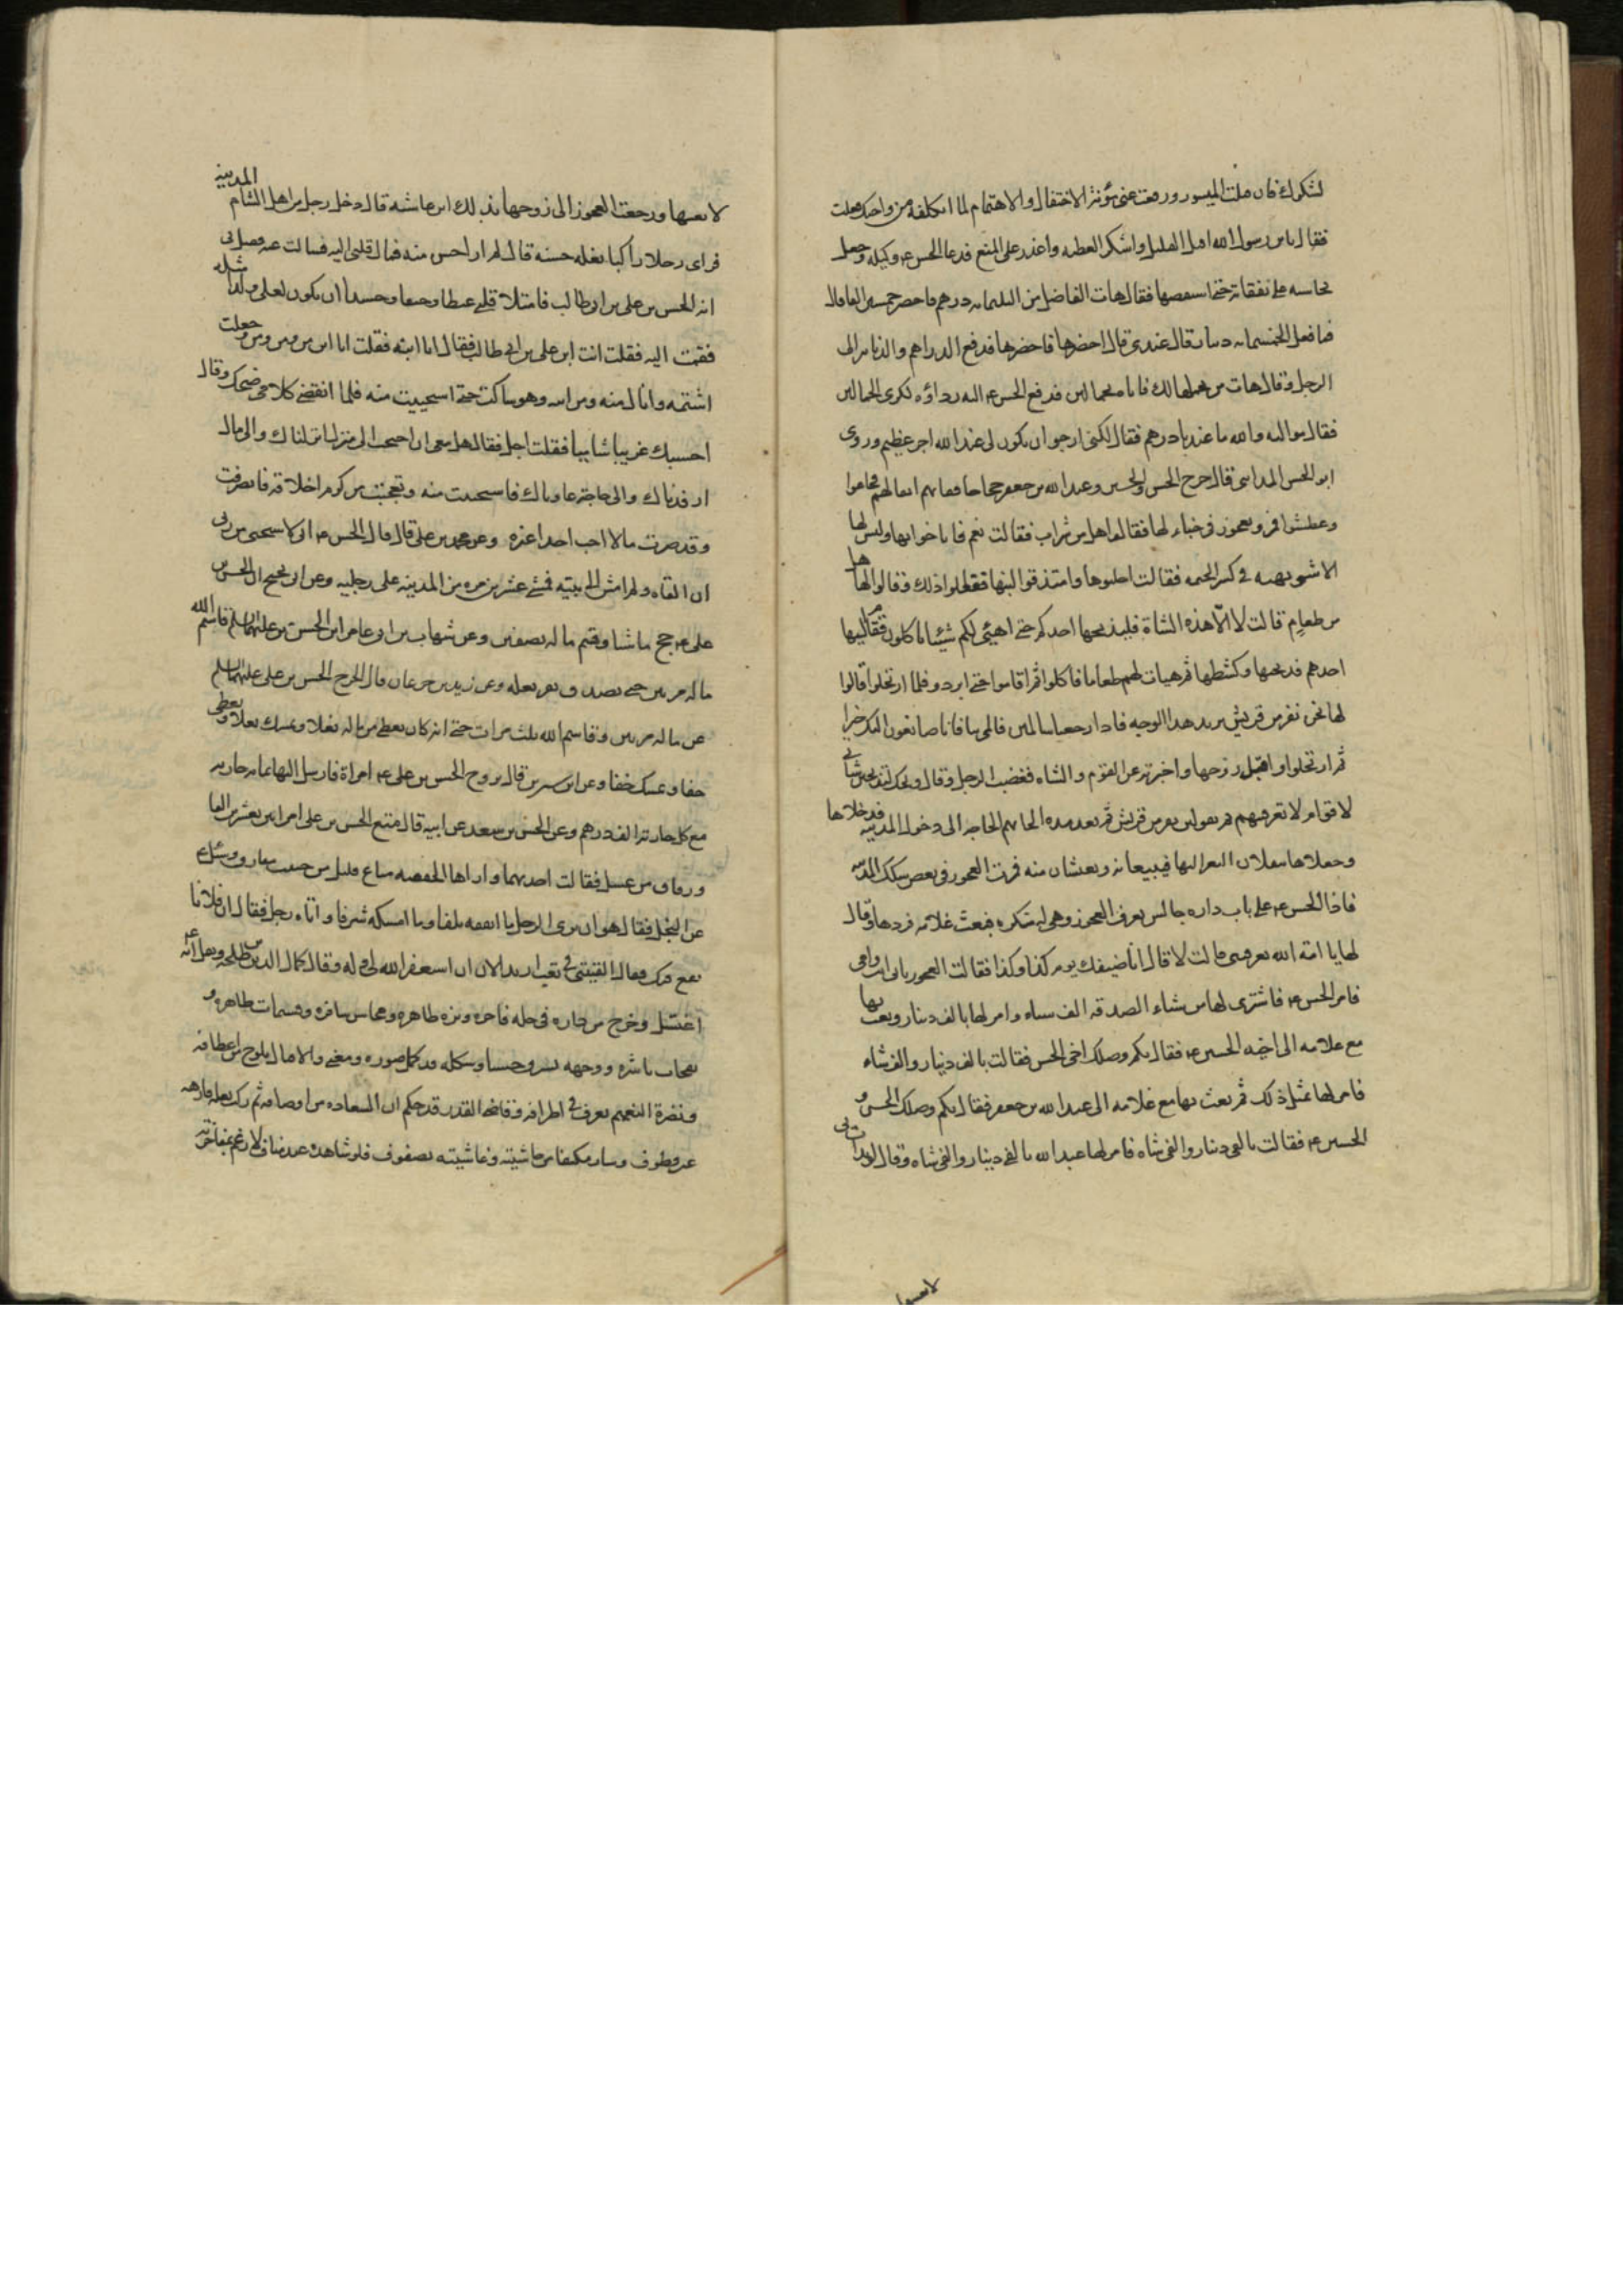 لشكرك فان قبلت الميسور ورفعت عنى مؤنة الاحتفال والاهتمام لما اتكلفه من واجبك فعلت
فقال يا بن رسول الله اقبل القليل واشكر العطيه واعذر على المنع فدعا الحسن ع وكيله وجعل
يحاسبه على نفقاته حتى استقصاها فقال هات الفاضل من الثلثمائه درهم فاحضر خمسين الفا قال
فما فعل الخمسمائه دينار قال عندى قال احضرها فاحضرها فدفع الدراهم والدنانير الى
الرجل وقال هات من يحملها لك فاتاه بحمالين فدفع الحسن ع اليه رداؤه لكرى الحمالين
فقال مواليه والله ما عندنا درهم فقال لكنى ارجوا ان يكون لى عند الله اجر عظيم وروى
ابو الحسن المداينى قال خرج الحسن والحسين وعبد الله بن جعفر حجاجا ففاتهم اثقالهم فجاعوا
وعطشوا فمروا بعجوز فى خباء لها فقالوا هل من شراب فقالت نعم فاناخوا بها وليس لها
الا شويهه فى كسر الخيمه فقالت احلبوها وامتذقوا لبنها ففعلوا ذلك وقالوا لها هل
من طعام قالت لا الا هذه الشاة فليذبحها احدكم حتى اهيئى لكم شيئا تاكلون فقام اليها
احدهم فذبحها وكشطها ثم هيات لهم طعاما فاكلوا ثم اقاموا حتى ابردوا فلما ارتحلوا قالوا
لها نحن نفر من قريش نريد هذا الوجه فاذا رجعنا سالمين فالمى بنا فانا صانعون اليك خيرا
ثم ارتحلوا واقبل زوجها واخبرته عن القوم والشاه فغضب الرجل وقال ويحك تذبحين شاتى
لاقوام لا تعرفيهم ثم تقولين نفر من قريش ثم بعد مده الجاتهم الحاجه الى دخول المدينه فدخلاها
وجعلا ينقلان البعر اليها فيبيعانه ويعيشان منه فمرت العجوز فى بعض سكك المدينه
فاذا الحسن ع على باب داره جالس فعرف العجوز وهى له منكره فبعث غلامه فردها وقال
لها يا امة الله تعرفينى قالت لا قال انا ضيفك يوم كذا وكذا فقالت العجوز بابى انت وامى
فامر الحسن ع فاشترى لها من شاء الصدقه الف شاه وامر لها بالف دينار وبعث بها
مع غلامه الى اخيه الحسين ع فقال بكم وصلك اخى الحسن فقالت بالف دينار والف شاه
فامر لها بمثل ذلك ثم بعث بها مع غلامه الى عبد الله بن جعفر فقال بكم وصلك الحسن و
الحسين ع فقالت بالفى دينار والفى شاه فامر لها عبد الله بالفى دينار والفى شاه وقال لو بدات بى
لاتعبتهما
لاتعبتهما ورجعت العجوز الى زوجها بذلك ابن عايشه قال دخل رجل من اهل الشام المدينه
فراى رجلا راكبا بغله حسنه قال لم ار احسن منه فمال قلبى اليه فسالت عنه فقيل لى
انه الحسن بن على بن ابى طالب فامتلا قلبى غيظا وحنقا وحسدا ان يكون لعلى ولد مثله
فقمت اليه فقلت انت ابن على بن ابى طالب فقال انا ابنه فقلت انا ابن من ومن ومن وجعلت
اشتمه وانال منه ومن ابيه وهو ساكت حتى استحييت منه فلما انقضى كلامى ضحك وقال
احسبك غريبا شاميا فقلت اجل فقال هل معى ان احتجت الى منزل انزلناك والى مال
ارفدناك والى حاجة عاوناك فاستحييت منه وعجبت من كرم اخلاقه فانصرفت
وقد صرت ما لا احب احدا غيره وعن محمد بن على قال قال الحسن ع انى لاستحيى من ربى
ان القاه ولم امش الى بيته فمشى عشرين مره من المدينه على رجليه وعن ابى نجيح ان الحسن بن
على ع حج ماشيا وقسم ماله نصفين وعن شهاب بن ابى عامر ان الحسن بن على عليهما السلم قاسم الله
ماله مرتين حتى تصدق بفرد نعله وعن زيد بن جدعان قال خرج الحسن بن على عليهما السلم
من ماله مرتين وقاسم الله ثلث مرات حتى انه كان يعطى من ماله نعلا ويمسك نعلا ويعطى
خفا ويمسك خفا وعن ابن سيرين قال تزوج الحسن بن على ع امراة فارسل اليها بمائه جاريه
مع كل جاريه الف درهم وعن الحسن بن سعد عن ابيه قال متع الحسن بن على امراتين بعشرين الفا
وزقاق من عسل فقالت احديهما واراها الحنفيه متاع قليل من حبيب مفارق وسئل ع
عن البخل فقال هو ان يرى الرجل ما انفقه تلفا وما امسكه شرفا واتاه رجل فقال ان فلانا
يقع فيك فقال القيتنى فى تعب اريد الان ان استغفر الله لى وله وقال كمال الدين بن طلحه ونقل انه ع
اغتسل وخرج من داره فى حله فاخره وبزه طاهره ومحاسن سافره وقسمات ظاهره و
نفحات ناشره ووجهه يشرق حسنا وشكله قد كمل صوره ومعنى والاقبال يلوح من اعطافه
ونضرة النعيم تعرف فى اطرافه وقاضى القدر قد حكم ان السعاده من اوصافه ثم ركب بغله فارهه
غير قطوف وسار مكتنفا من حاشيته وغاشيته بصفوف فلو شاهده عبد مناف لارغم بمفاخرته